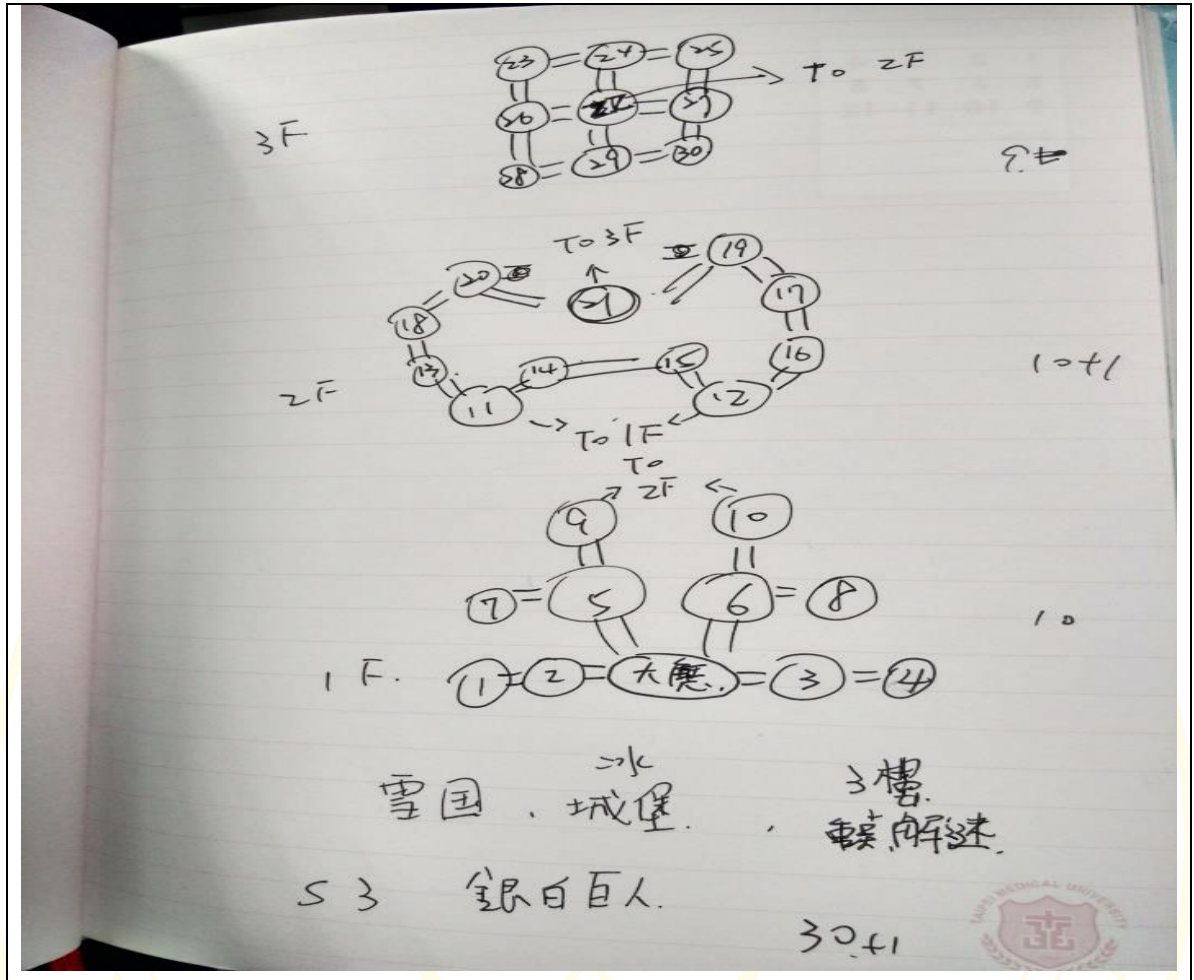 23 24 25
To 2F
26 27
3F
28 29 30
To 3F
20 21 19
18 17
13 14 15 16
2F
10+1
11 12
To 1F
To
2F
9 10
7 5 6 8
10
1F. 1 2 大廳. 3 4
冰
雪国、城堡. 、 3樓.
解谜.
S3 銀白巨人.
30+1
TAIPEI MEDICAL UNIVERSITY